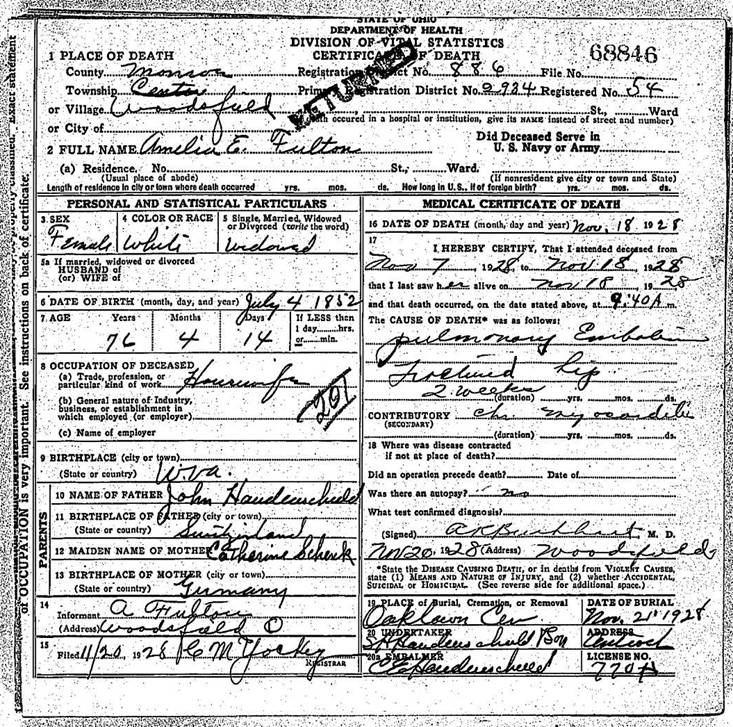 STATE OF OHIO
DEPARTMENT OF HEALTH
DIVISION OF VITAL STATISTICS
CERTIFICATE OF DEATH
68846
RETURNED
1 PLACE OF DEATH
County Monroe Registration District No. 886 File No.
Township Center Primary Registration District No. 2924 Registered No. 54
or Village Woodsfield St., Ward
or City of (If death occurred in a hospital or institution, give its NAME instead of street and number)
2 FULL NAME Amelia E. Fulton Did Deceased Serve in U. S. Navy or Army
(a) Residence. No. St., Ward.
(Usual place of abode) (If nonresident give city or town and State)
Length of residence in city or town where death occurred yrs. mos. ds. How long in U. S., if of foreign birth? yrs. mos. ds.
PERSONAL AND STATISTICAL PARTICULARS
3. SEX Female
4 COLOR OR RACE White
5 Single, Married, Widowed or Divorced (write the word) Widowed
5a If married, widowed or divorced
HUSBAND of
(or) WIFE of
6 DATE OF BIRTH (month, day, and year) July 4 1852
7 AGE Years 76 Months 4 Days 14 If LESS then 1 day,....hrs. or....min.
8 OCCUPATION OF DECEASED
(a) Trade, profession, or particular kind of work Housewife
(b) General nature of Industry, business, or establishment in which employed (or employer)
201
(c) Name of employer
9 BIRTHPLACE (city or town)
(State or country) W.Va.
PARENTS
10 NAME OF FATHER John Haudenschield
11 BIRTHPLACE OF FATHER (city or town)
(State or country) Switzerland
12 MAIDEN NAME OF MOTHER Catherine
13 BIRTHPLACE OF MOTHER (city or town)
(State or country) Germany
14 Informant A Fulton
(Address) Woodsfield O
15 Filed 11/20, 1928 C M Yockey
REGISTRAR
MEDICAL CERTIFICATE OF DEATH
16 DATE OF DEATH (month, day and year) Nov. 18 1928
17 I HEREBY CERTIFY, That I attended deceased from
Nov 7, 1928 to Nov 18, 1928
that I last saw her alive on Nov 18, 1928
and that death occurred, on the date stated above, at 9:40 A m.
The CAUSE OF DEATH* was as follows:
Pulmonary Embolism
Fractured hip
2 weeks
(duration) yrs. mos. ds.
CONTRIBUTORY Chr Myocarditis
(SECONDARY)
(duration) yrs. mos. ds.
18 Where was disease contracted
if not at place of death?
Did an operation precede death? Date of
Was there an autopsy? no
What test confirmed diagnosis?
(Signed) M. D.
Nov 20, 1928 (Address) Woodsfield
*State the DISEASE CAUSING DEATH, or in deaths from VIOLENT CAUSES,
state (1) MEANS AND NATURE OF INJURY, and (2) whether ACCIDENTAL,
SUICIDAL or HOMICIDAL. (See reverse side for additional space.)
19 PLACE of Burial, Cremation, or Removal Oaklawn Cem
DATE OF BURIAL Nov. 21 1928
20 UNDERTAKER Haudenschield & Son
ADDRESS Antioch
20a EMBALMER Haudenschield
LICENSE NO. 770A
of OCCUPATION is very important. See instructions on back of certificate.